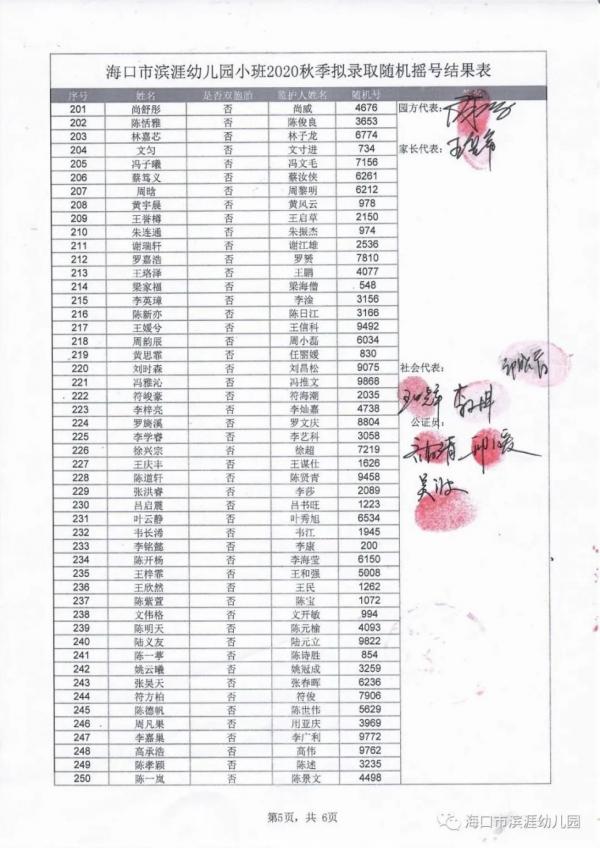 海口市滨涯幼儿园小班2020秋季拟录取随机摇号结果表
序号 姓名 是否双胞胎 监护人姓名 随机号
201 尚舒彤 否 尚威 4676 园方代表:
202 陈恬雅 否 陈俊良 3653
203 林嘉芯 否 林子龙 6774
204 文匀 否 文寸进 734 家长代表:
205 冯子曦 否 冯文毛 7156
206 蔡笃义 否 蔡汝侠 6261
207 周晗 否 周黎明 6212
208 黄宇晨 否 黄风云 978
209 王誉樽 否 王启草 2150
210 朱连通 否 朱振杰 974
211 谢瑞轩 否 谢江雄 2536
212 罗嘉浩 否 罗赟 7810
213 王珞泽 否 王鹏 4077
214 梁家福 否 梁海僧 548
215 李英璋 否 李淦 3156
216 陈新亦 否 陈日江 3166
217 王媛兮 否 王信科 9492
218 周韵辰 否 周小磊 6034
219 黄思霏 否 任丽媛 830
220 刘时森 否 刘昌松 9075 社会代表:
221 冯雅沁 否 冯推文 9868
222 符峻豪 否 符海潮 2035
223 李梓亮 否 李灿嘉 4738
224 罗旖溪 否 罗文庆 8804 公证员:
225 李学睿 否 李艺科 3058
226 徐兴宗 否 徐超 7219
227 王庆丰 否 王谋仕 1626
228 陈道轩 否 陈贤青 9458
229 张洪睿 否 李莎 2089
230 吕启震 否 吕书旺 1223
231 叶云静 否 叶秀旭 6534
232 韦长浠 否 韦江 1945
233 李铭懿 否 李康 200
234 陈开杨 否 李海莹 6150
235 王梓霏 否 王和强 5008
236 王欣然 否 王民 1262
237 陈紫萱 否 陈宝 1072
238 文伟格 否 文开敏 994
239 陈明天 否 陈元榆 4093
240 陆义友 否 陆元立 9822
241 陈一葶 否 陈诗胜 854
242 姚云曦 否 姚冠成 3259
243 张昊天 否 张春晖 6236
244 符方柏 否 符俊 7906
245 陈德帆 否 陈世伟 5629
246 周凡果 否 周亚庆 3969
247 李嘉巢 否 李广利 9772
248 高承浩 否 高伟 9762
249 陈孝颖 否 陈述 3235
250 陈一岚 否 陈景文 4498
第5页，共 6页
海口市滨涯幼儿园